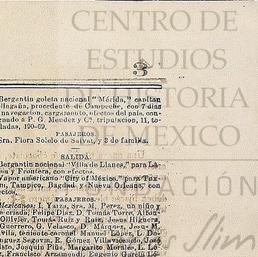 CENTRO DE
ESTUDIOS
DE HISTORIA
DE MÉXICO
3
Bergantin goleta nacional "Mérida," capitan
Magaña, procedente de Campeche, con 7 dias
navegacion, cargamento, efectos del país, con-
nado a P. G. Mendez y C.ª, tripulacion, 11, to-
ladas, 190-69.
PASAJEROS.
Sra. Flora Solelo de Salvat, y 3 de familia.
SALIDA.
Bergantin nacional "Villa de Llanes," para La-
y Frontera, con efectos.
Vapor americano "City of México," para Tux-
Tampico, Bagdad y Nueva Orleans, con
PASAJEROS.
Mexicanos: I. Laiza, Sra. M. Perez, un niño y
criada; Felipe Diaz, D. Tomás Torre, Alfonso
Ollivier, Tomás Ruiz, Jesus Higuera,
Guerrero, G. Velasco, D. Marquez, Jesus M.
Manuel
Segovia, R. Gomez Villavicencio, José
Joaquin Pila, Margarito Morales, I. Lo-
Francisco Arzamendi, Eugenio Garcia